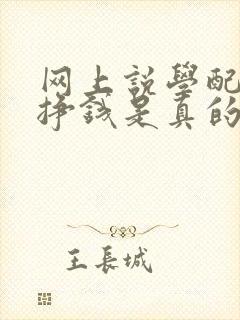 网上説學配
挣錢是真的
王長城